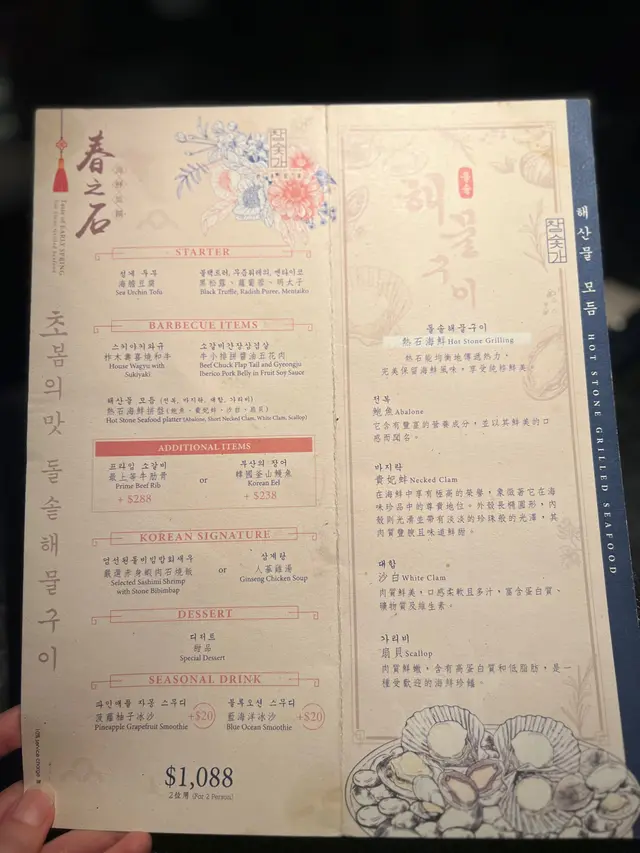 春之石
Taste of EARLY SPRING
Hot Stone Grilled Seafood
초봄의맛 돌솥해물구이
참숯가
STARTER
성게 두부
海膽豆腐
Sea Urchin Tofu
블랙트러, 무준위래의, 멘타이꼬
黑松露、蘿蔔蓉、明太子
Black Truffle, Radish Puree, Mentaiko
BARBECUE ITEMS
스키야키와규
柞木壽喜燒和牛
House Wagyu with
Sukiyaki
소갈비간장삼겹살
牛小排拼醬油五花肉
Beef Chuck Flap Tail and Gyeongju
Iberico Pork Belly in Fruit Soy Sauce
해산물 모듬 (전복, 바지락, 대합, 가리비)
熱石海鮮拼盤 (鮑魚、貴妃蚌、沙白、扇貝)
Hot Stone Seafood platter (Abalone, Short Necked Clam, White Clam, Scallop)
ADDITIONAL ITEMS
프라임 소갈비
最上等牛肋骨
Prime Beef Rib
+ $288
or
부산의 장어
韓國釜山鰻魚
Korean Eel
+ $238
KOREAN SIGNATURE
엄선원돌비빔밥회새우
嚴選赤身蝦肉石燒飯
Selected Sashimi Shrimp
with Stone Bibimbap
or
삼계탕
人蔘雞湯
Ginseng Chicken Soup
DESSERT
디저트
甜品
Special Dessert
SEASONAL DRINK
파인애플 자몽 스무디
菠蘿柚子冰沙
Pineapple Grapefruit Smoothie
+$20
블루오션 스무디
藍海洋冰沙
Blue Ocean Smoothie
+$20
$1,088
2位用 (For 2 Persons)
돌솥
해물구이
참숯가
돌솥해물구이
熱石海鮮 Hot Stone Grilling
熱石能均衡地傳遞熱力，
完美保留海鮮風味，享受極修鮮美。
전복
鮑魚 Abalone
它含有豐富的營養成分，並以其鮮美的口
感而聞名。
바지락
貴妃蚌 Necked Clam
在海鮮中享有極高的榮譽，象徵著它在海
味珍品中的尊貴地位。外殼長橢圓形，內
殼則光澤並帶有淡淡的珍珠般的光澤，其
肉質豐腴且味道鮮甜。
대합
沙白 White Clam
肉質鮮美，口感柔軟且多汁，富含蛋白質、
礦物質及維生素。
가리비
扇貝 Scallop
肉質鮮嫩，含有高蛋白質和低脂肪，是一
種受歡迎的海鮮珍饈。
해산물 모듬 HOT STONE GRILLED SEAFOOD